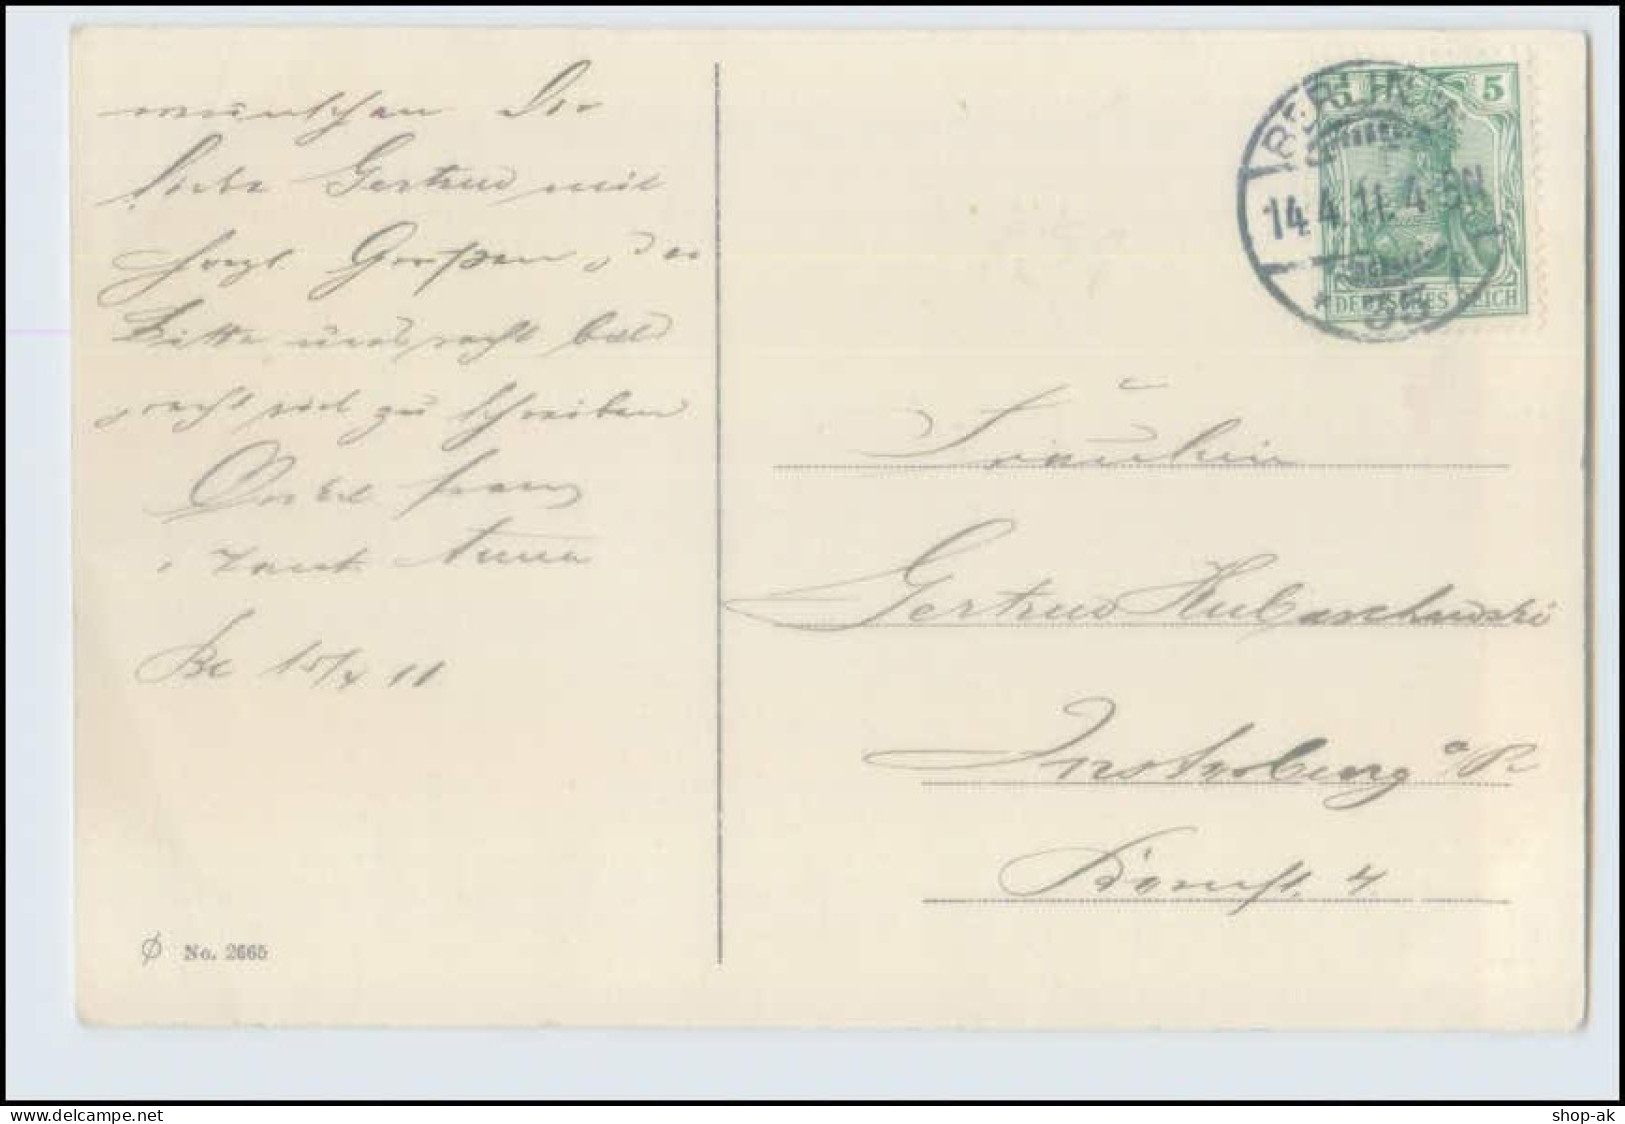 wünschen Dir
liebe Gertrud mit
herzl Grüßen, der
Bitte uns recht bald
recht viel zu schreiben
Onkel Franz
u. Tante Anna
Be 15/4 11
No. 2665
BERLIN
14.4.11. 4-5N
35
5
DEUTSCHES REICH
Fräulein
Gertrud Kubaschewski
Insterburg o/P
4
www.delcampe.net
shop-ak